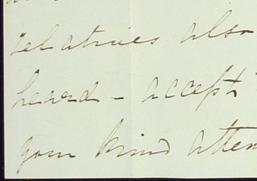 relatives also
heard - accept
your kind atten